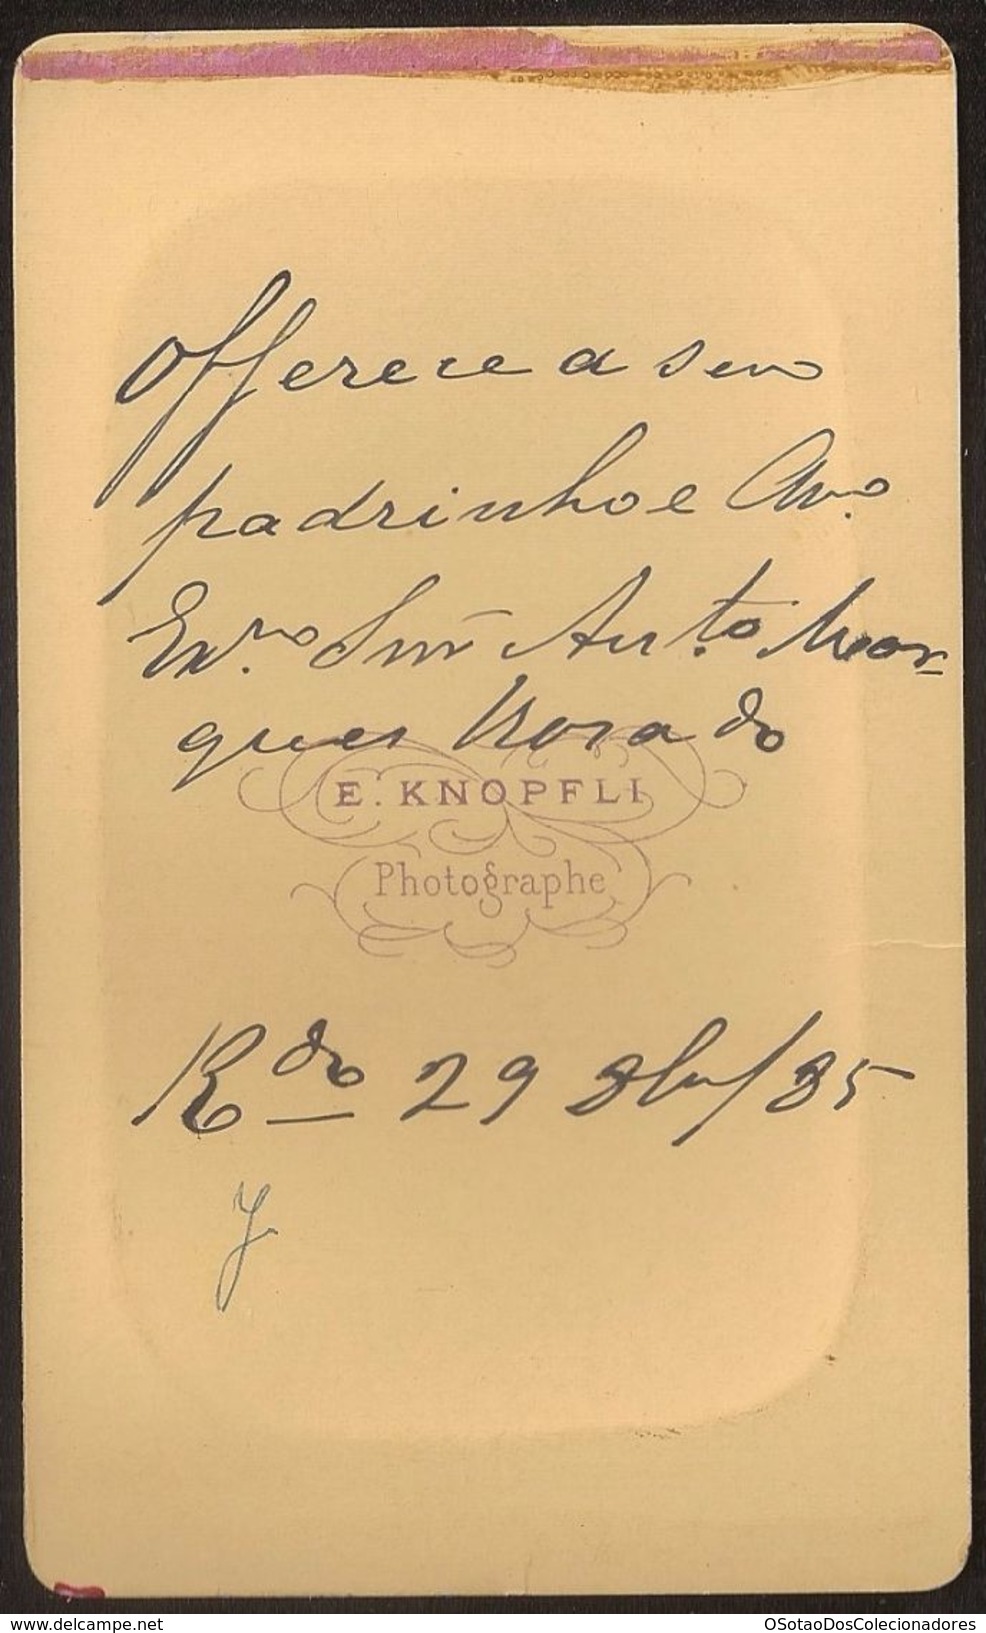 Offerece a seu
padrinho e Avo.
Ex.mo Snr Ant.to Mar-
ques Rosado
E. KNOPFLI
Photographe
R.do 29 8bro/85
www.delcampe.net
OSotaoDosColecionadores